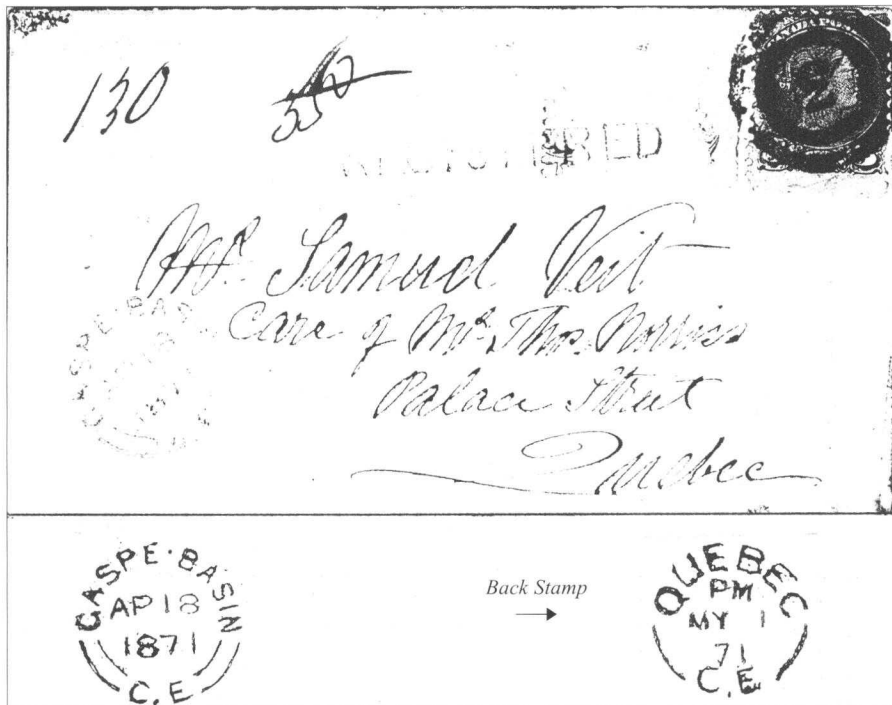 130 550
REGISTERED
2
Mr. Samuel Veit
Care of Mr. Thos. Norriss
Palace Street
Quebec
GASPE·BASIN
1871
GASPE·BASIN
AP 18
1871
C.E
Back Stamp
QUEBEC
PM
MY 1
71
C.E